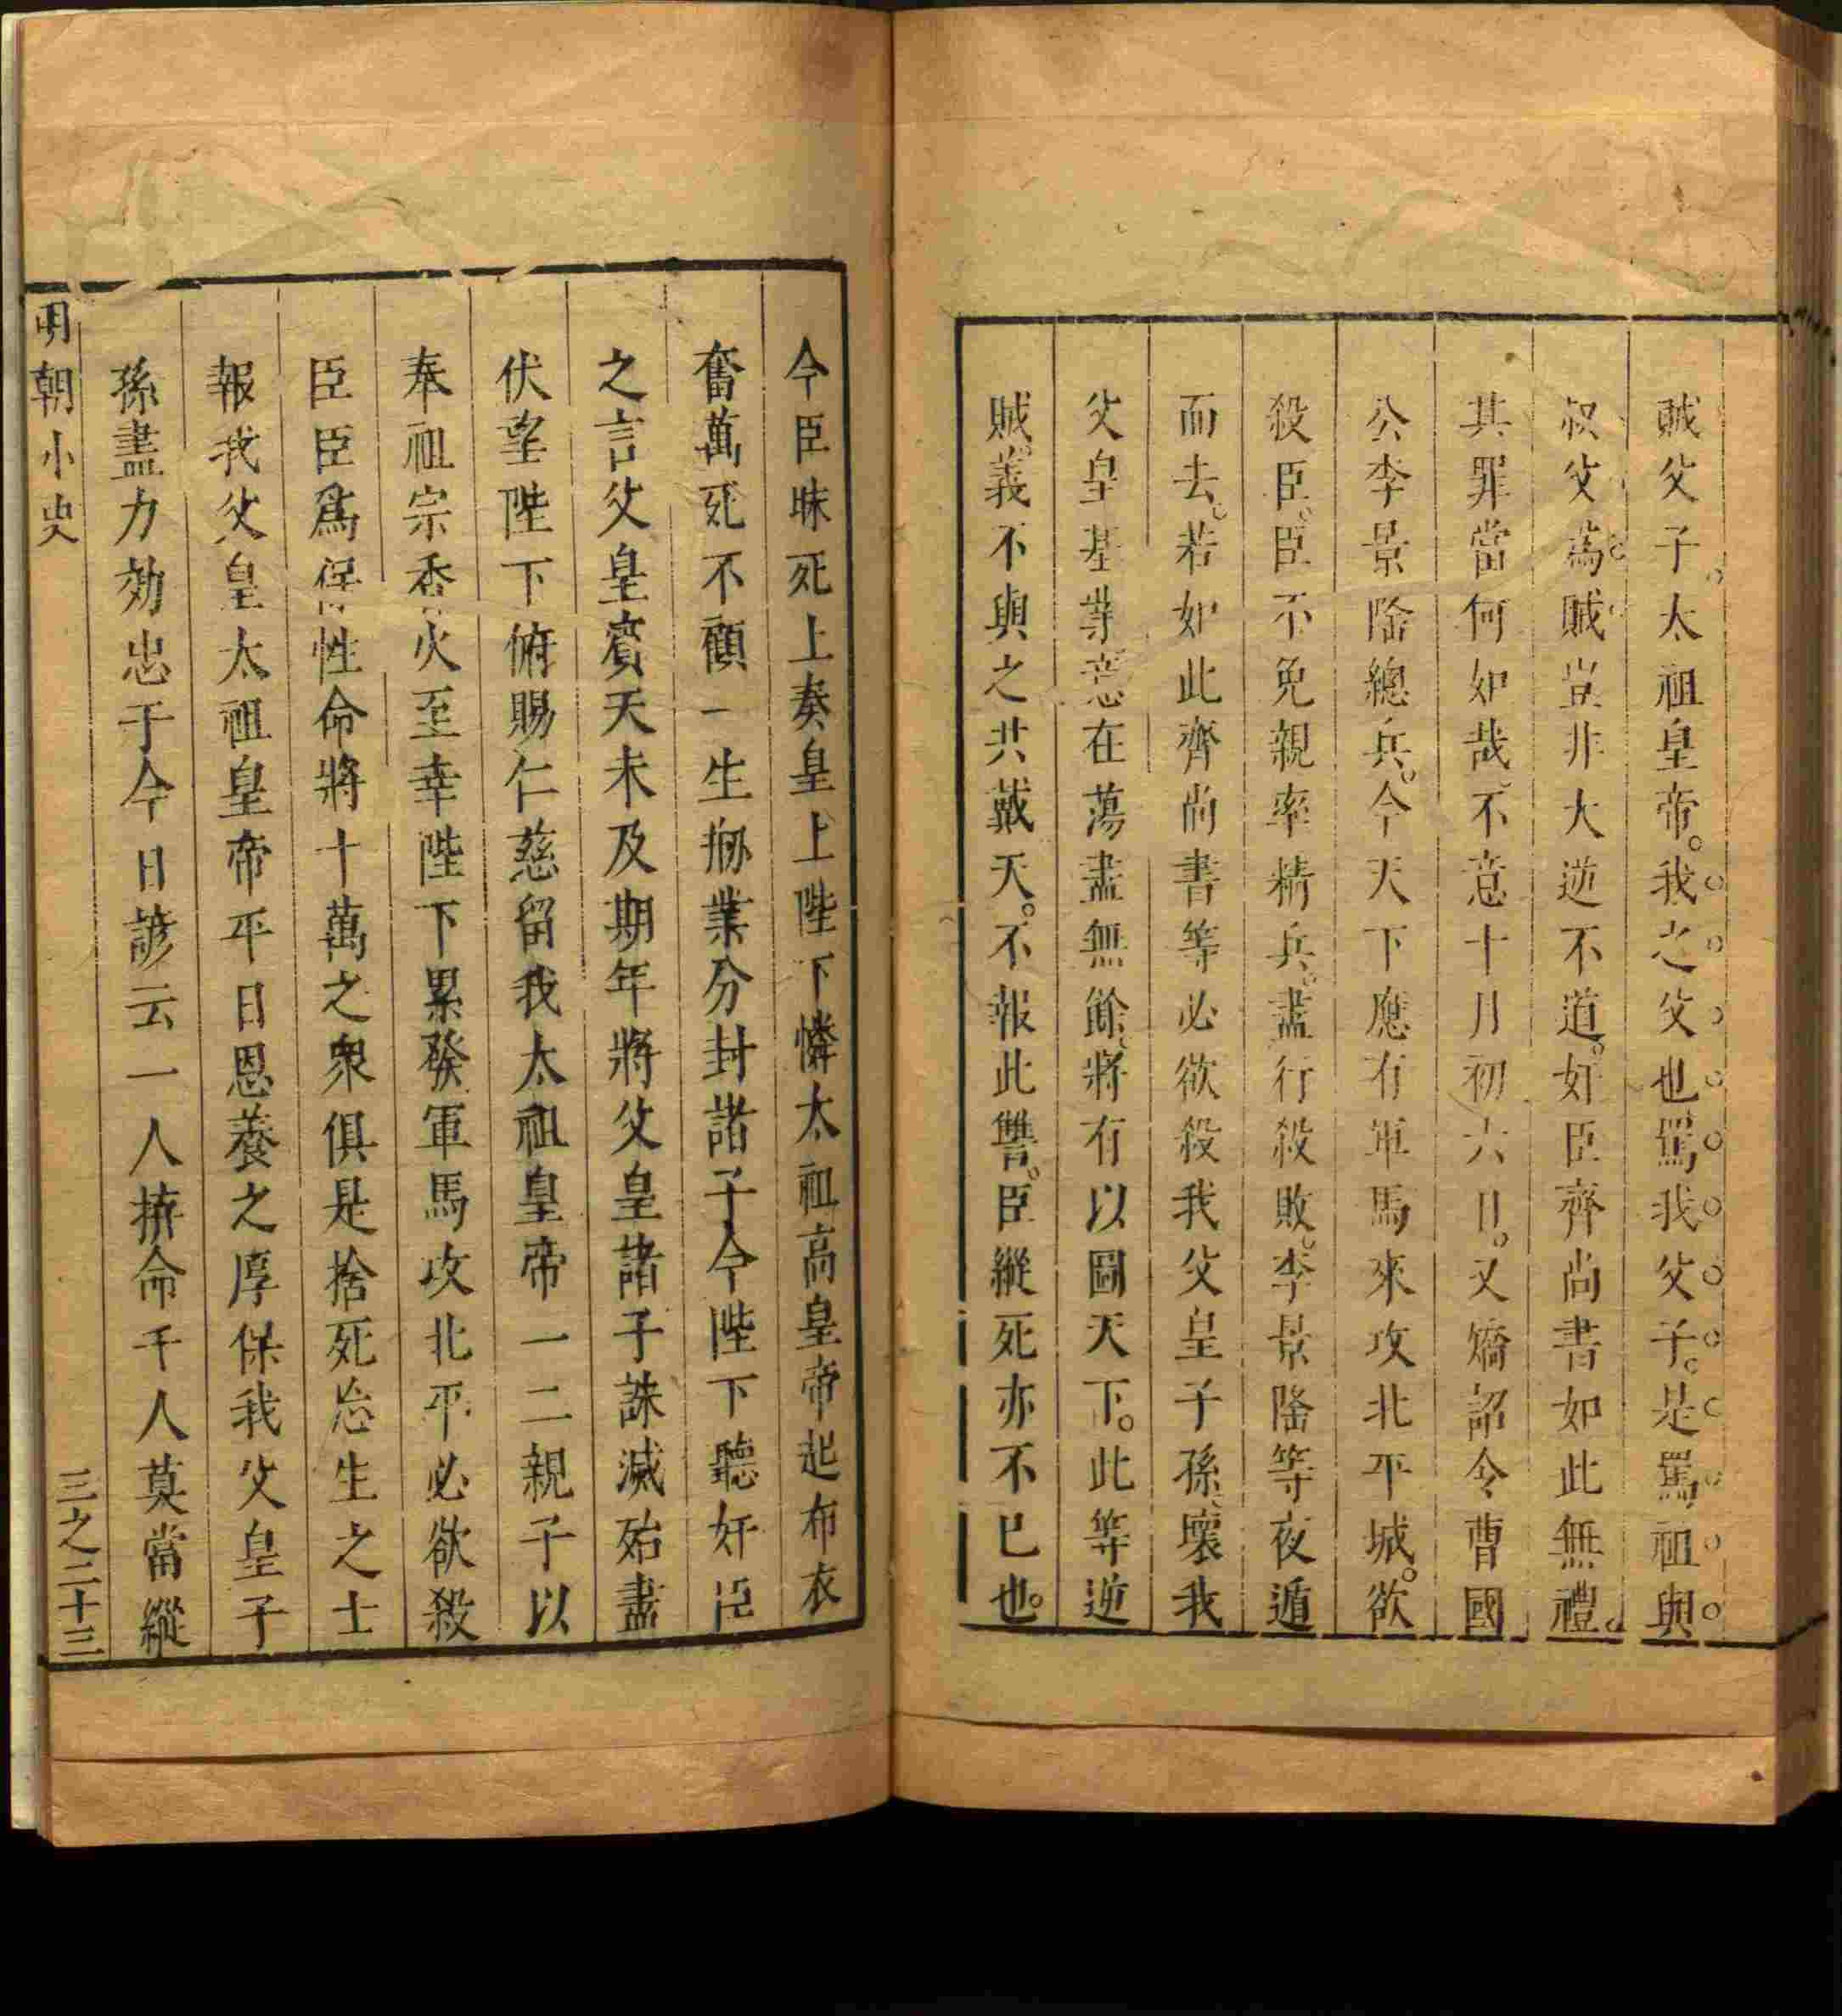 賊父子太祖皇帝。我之父也罵我父子。是罵祖與
叔父爲賊豈非大逆不道。奸臣齊尚書如此無禮。
其罪當何如哉不意十月初六日。又矯詔令曹國
公李景隆總兵。今天下應有軍馬來攻北平城。欲
殺臣。臣不免親率精兵。盡行殺敗。李景隆等夜遁
而去。若如此齊尚書等必欲殺我父皇子孫壞我
父皇基業意在蕩盡無餘。將有以圖天下。此等逆
賊。義不與之共戴天。不報此讐。臣縱死亦不已也。
今臣昧死上奏皇上陛下憐太祖高皇帝起布衣
奮萬死不顧一生拚業分封諸子今陛下聽奸臣
之言父皇賓天未及期年將父皇諸子誅滅殆盡
伏望陛下俯賜仁慈留我太祖皇帝一二親子以
奉祖宗香火至幸陛下累發軍馬攻北平必欲殺
臣臣爲保性命將十萬之衆俱是捨死忘生之士
報我父皇太祖皇帝平日恩養之厚保我父皇子
孫盡力効忠于今日諺云一人拚命千人莫當縱
明朝小史
三之二十三